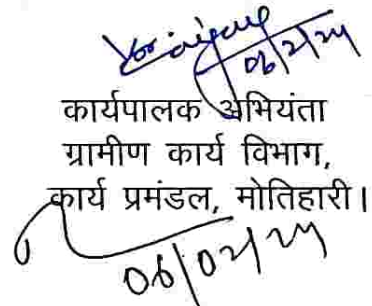 06/2/24
कार्यपालक अभियंता
ग्रामीण कार्य विभाग,
कार्य प्रमंडल, मोतिहारी।
06/02/24